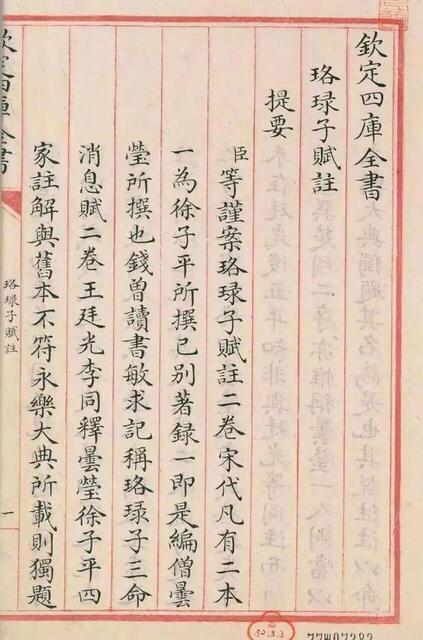 欽定四庫全書
珞琭子賦註
提要
臣等謹案珞琭子賦註二卷宋代凡有二本
一為徐子平所撰已别著録一即是編僧曇
瑩所撰也錢曽讀書敏求記稱珞琭子三命
消息賦二卷王廷光李同釋曇瑩徐子平四
家註解與舊本不符永樂大典所載則獨題
欽定四庫全書
珞琭子賦註
一
52.3.3